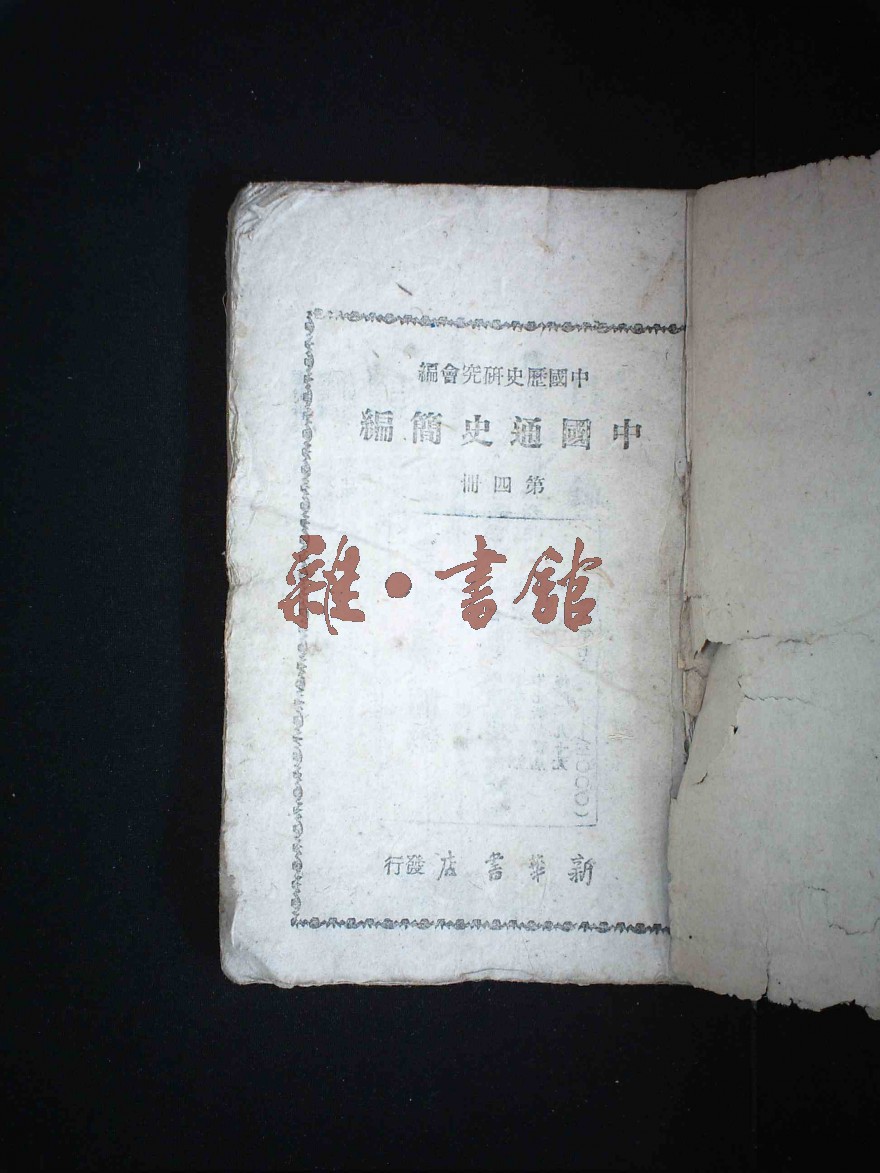 中國歷史研究會編
中國通史簡編
第四冊
雜·書館
新華書店發行